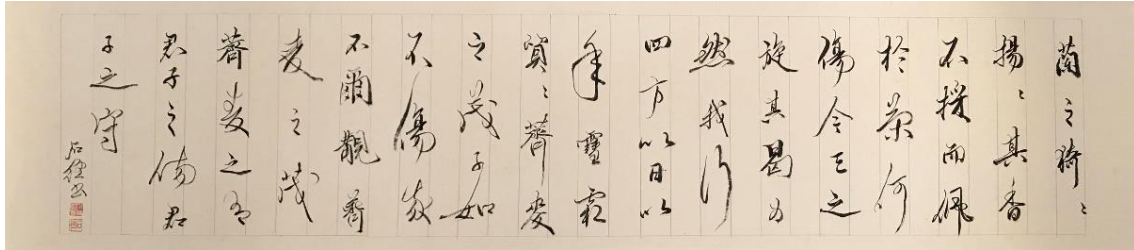 蘭之猗〻
揚〻其香
不採而佩
於蘭何
傷今天之
旋其曷为
然我行
四方以日以
年雪霜
貿〻薺麥
之茂子如
不傷我
不爾覯薺
麥之茂
薺麥之有
君子之傷君
子之守